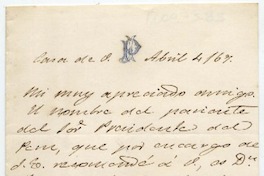 Casa de P. Abril 4/67.
Mi muy apreciado amigo.
El nombre del pariente
del Sor. Presidente del
Perú, que por encargo de